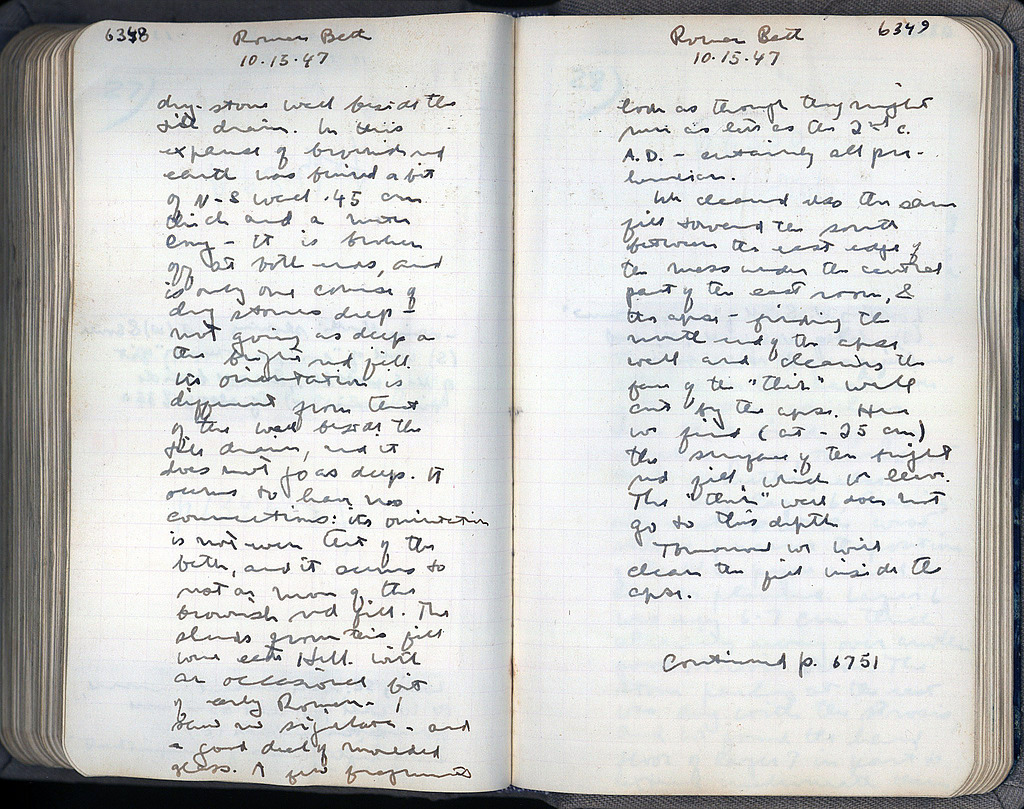 6348
Roman Bath
10.15.47
dry-stone wall beside the
tile drain. In this
expanse of brownish red
earth was found a bit
of N-S wall .45 cm
thick and a meter
long - It is broken
off at both ends, and
is only one course of
dry stones deep -
not going as deep as
the bright red fill.
Its orientation is
different from that
of the wall beside the
tile drain, and it
does not go as deep. It
seems to have no
connections: its orientation
is not even that of the
bath, and it seems to
rest on more of the
brownish red fill. The
sherds from this fill
were late Hell. with
an occasional bit
of early Roman - I
saw no sigillata - and
a good deal of moulded
glass. A few fragments
6349
Roman Bath
10.15.47
look as though they might
run as late as the 2nd c.
A.D. - certainly all pre-
herulian.
We cleared also the same
fill toward the south
between the east edge of
the mass under the central
part of the east room, &
the apse - finding the
north end of the apse
wall and clearing the
face of the "thin" wall
cut by the apse. Here
we find (at - 25 cm)
the surface of the bright
red fill, which we leave.
The "thin" wall does not
go to this depth
Tomorrow we will
clean the fill inside the
apse.
Continued p. 6751